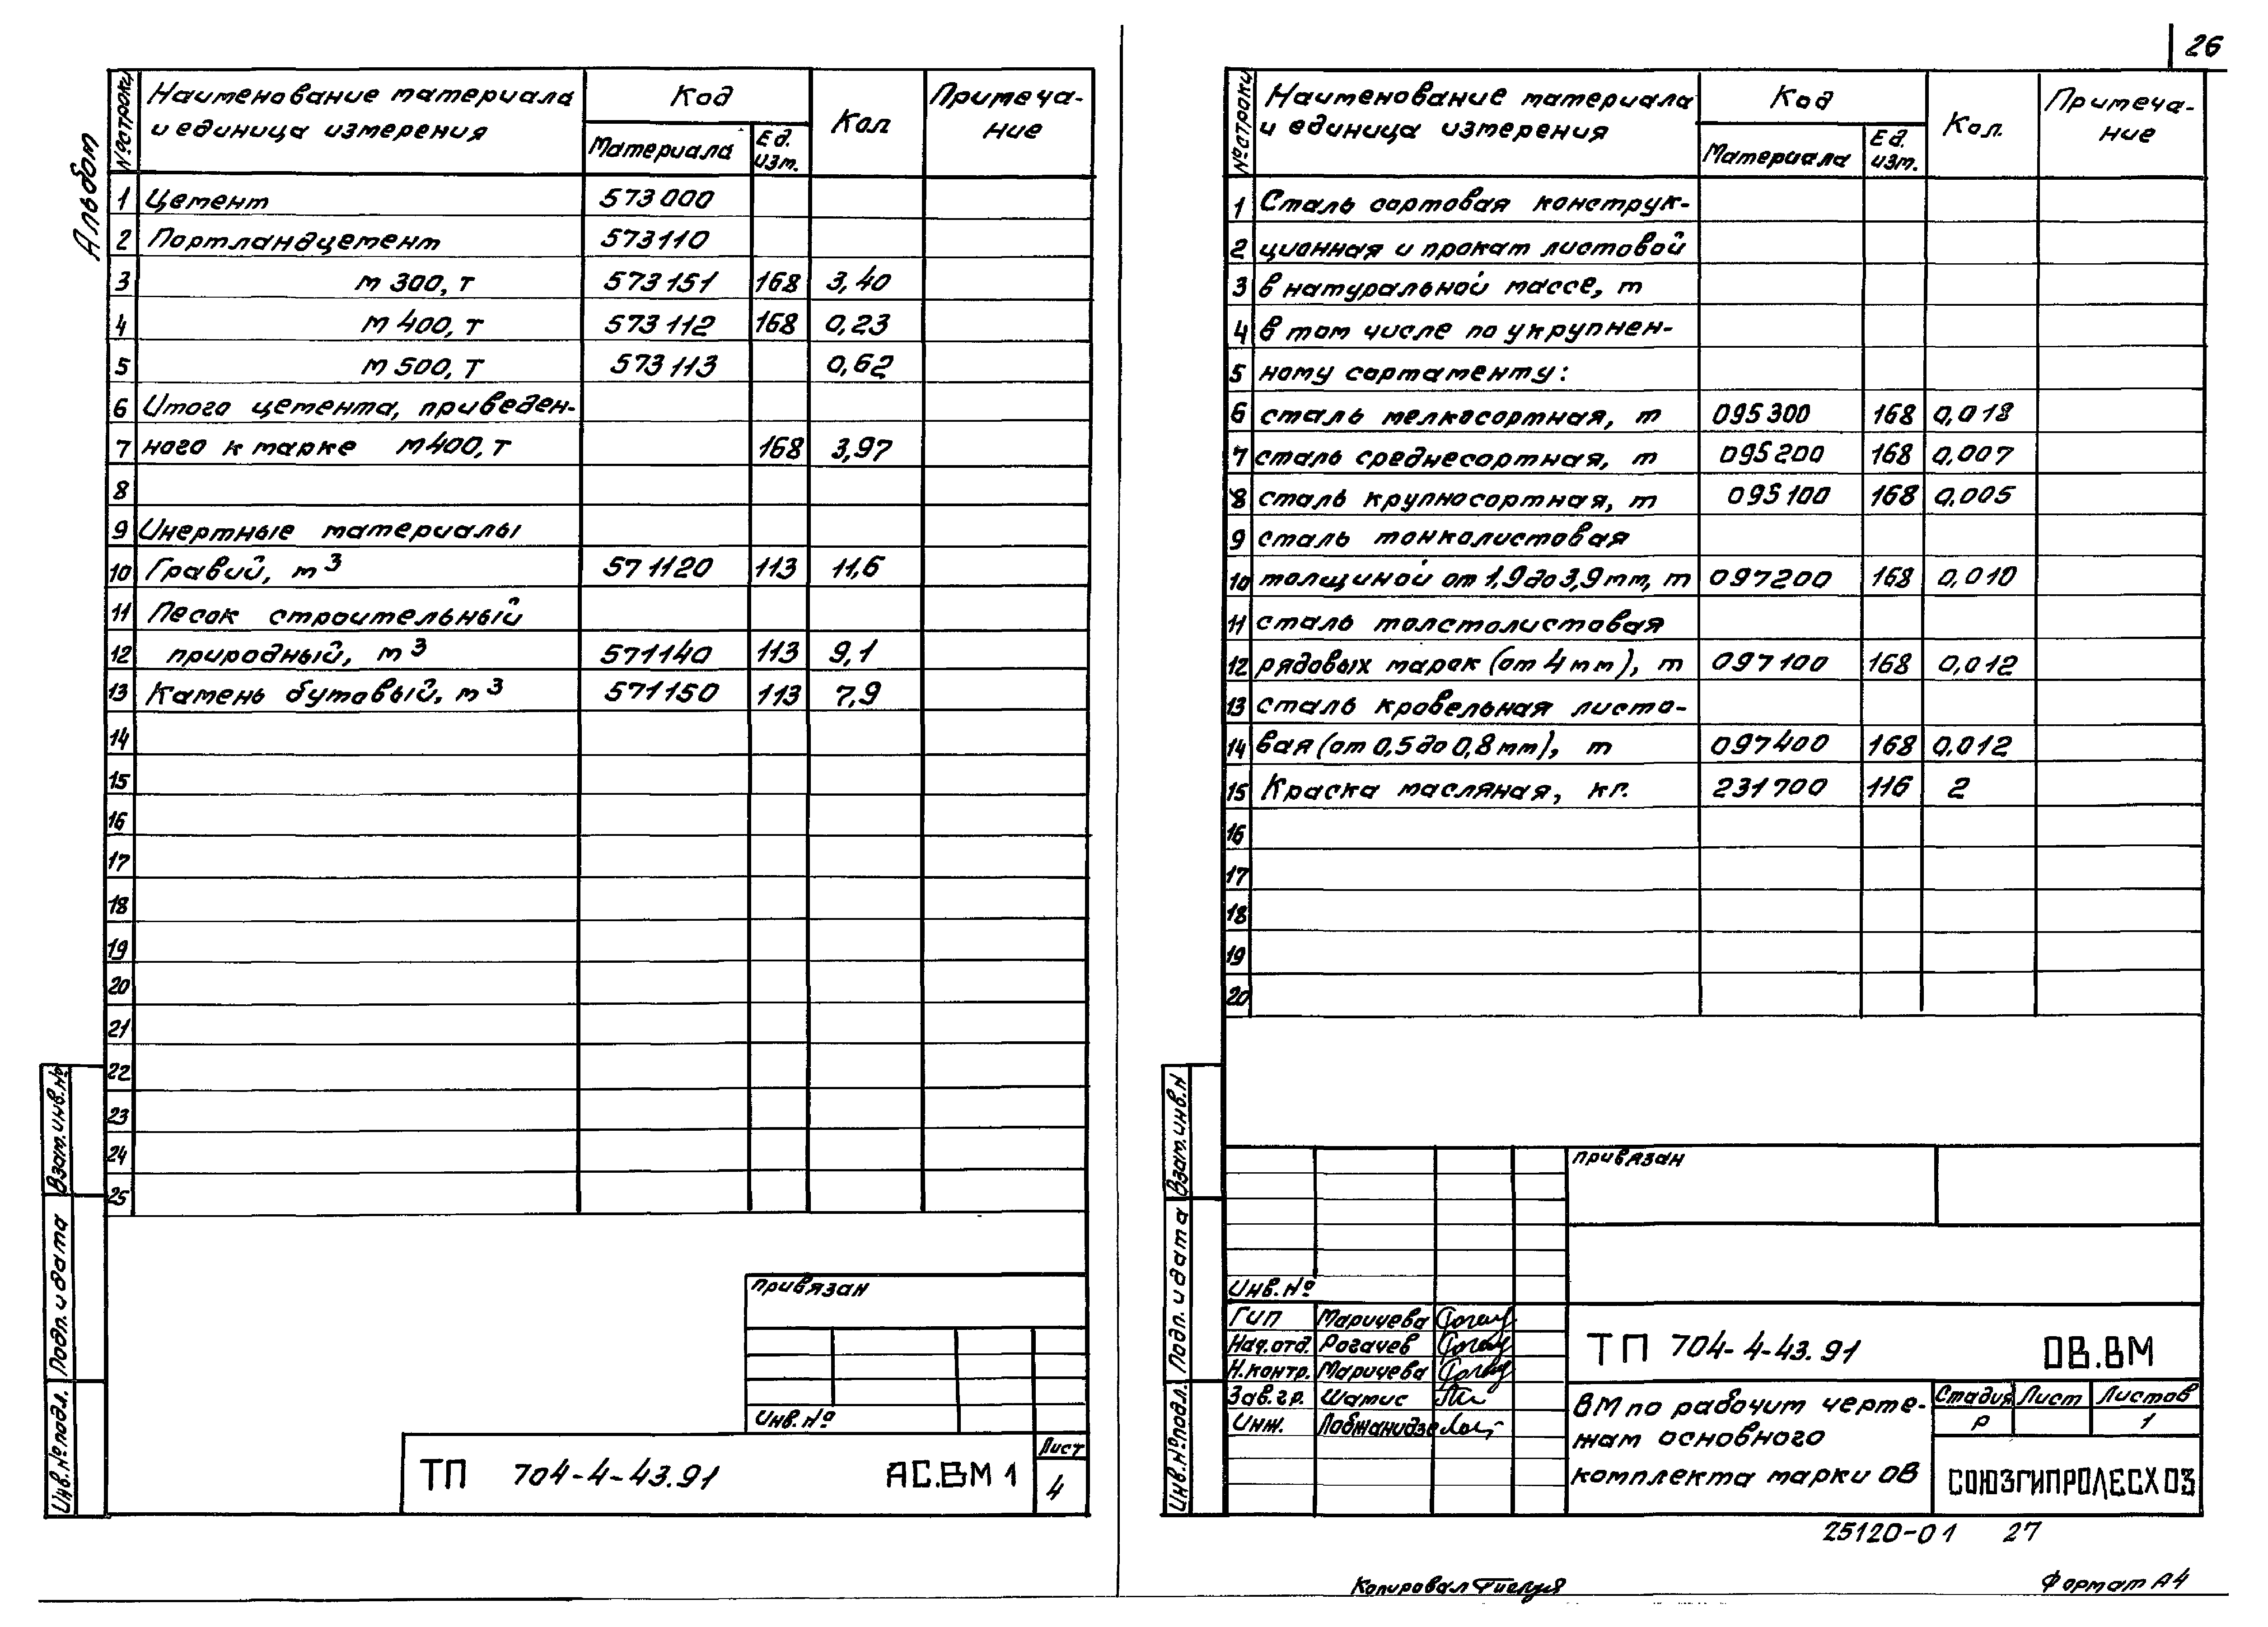 26
Альбом
№ строки Наименование материала и единица измерения Код Кол Примеча-
ние
Материала Ед. изм.
1 Цемент 573000
2 Портландцемент 573110
3 м 300, т 573151 168 3,40
4 м 400, т 573112 168 0,23
5 м 500, т 573113 0,62
6 Итого цемента, приведен-
7 ного к марке м400, т 168 3,97
8
9 Инертные материалы
10 Гравий, м3 571120 113 11,6
11 Песок строительный
12 природный, м3 571140 113 9,1
13 Камень бутовый, м3 571150 113 7,9
14
15
16
17
18
19
20
21
22
23
24
25
Взам.инв.№
Подп. и дата
Инв.№подл.
привязан
Инв.№
ТП 704-4-43.91 АС.ВМ 1
Лист
4
№ строки Наименование материала и единица измерения Код Кол. Примеча-
ние
Материала Ед. изм.
1 Сталь сортовая конструк-
2 ционная и прокат листовой
3 в натуральной массе, т
4 в том числе по укрупнен-
5 ному сортаменту:
6 сталь мелкосортная, т 095300 168 0,018
7 сталь среднесортная, т 095200 168 0,007
8 сталь крупносортная, т 095100 168 0,005
9 сталь тонколистовая
10 толщиной от 1,9 до 3,9 мм, т 097200 168 0,010
11 сталь толстолистовая
12 рядовых марок (от 4 мм), т 097100 168 0,012
13 сталь кровельная листо-
14 вая (от 0,5 до 0,8 мм), т 097400 168 0,012
15 Краска масляная, кг. 231700 116 2
16
17
18
19
20
Взам.инв.№
Подп. и дата
Инв.№подл.
привязан
Инв.№
ГИП Маричева
Нач.отд. Рогачев
Н.контр. Маричева
Зав.гр. Шатис
Инж. Лобжанидзе
ТП 704-4-43.91 ОВ.ВМ
ВМ по рабочим черте-
жам основного
комплекта марки ОВ
Стадия Лист Листов
Р 1
СОЮЗГИПРОЛЕСХОЗ
25120-01 27
Копировал
Формат А4